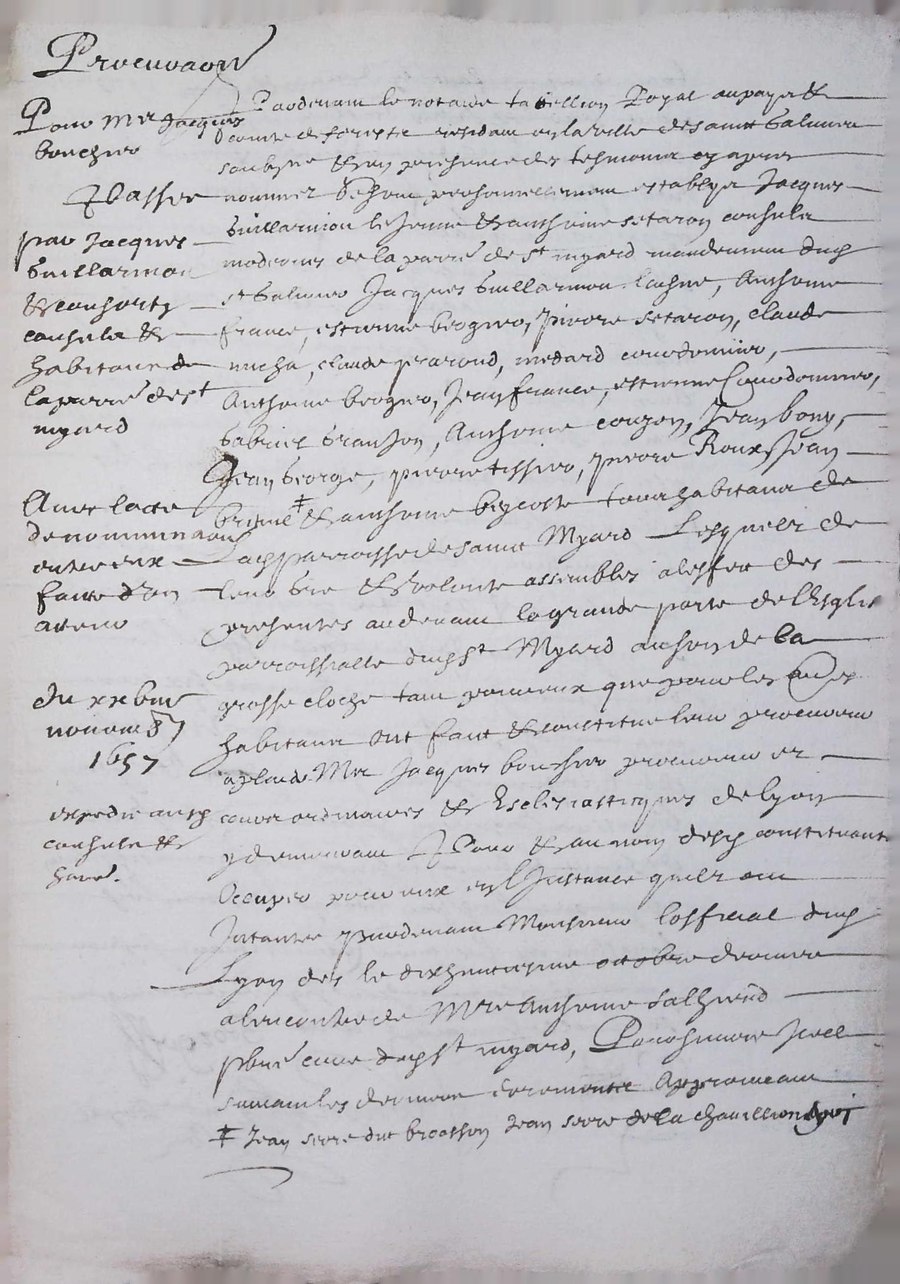 Procuraon
Pour Mre Jacques
bouchier
Passee
par Jacques
Guillarmon
& consortz
consulz &
habitans de
la parre de st
myard
Avec lacte
de nomination
entre eux
faicte dun
du xxbme
novem
1657
expedie ausd
consulz &
Pardevant le notaire tabellion Royal au pays &
comte de forestz residant en la ville de sainct Galmier
soubzne & en presence des tesmoins cy apres
nommez personnellement establys Jacques
Guillarmon le Jeune & anthoine setaron consulz
modernes de la parre de st myard mandement dud
st Galmier Jacques Guillarmon laisne, Anthoine
france, estienne bergier, pierre setaron, claude
micha, claude prarond, medard courdonnier,
Anthoine bergier, Jean france, estienne Courdonnier,
Gabriel Granjon, Anthoine couzon, Jean bony,
Jean George, pierre tissier, pierre Roux, Jean
‡ & anthoine tous habitans de
lad parroisse de sainct Myard Lesquelz de
leur gre & volonte assembles a leffet des
presentes au devant la grande porte de lesglise
parroissialle dud st Myard au son de la
grosse cloche tant pour eux que pour les aues
habitans Ont faict & constitue leur procureur
a plaids Mre Jacques bouchier procureur ez
cours ordinaires & Esclesiasticques de lyon
y demeurant Pour & au nom desd constituants
Occuper pour eux en lInstance quilz ont
Intantee pardevant Monsieur lofficial dud
Lyon des le dixhuictiesme octobre dernier
alencontre de Mre Anthoine
pbre cure dud st myard, Poursuivre Icelle
suivant les derniers erremente Approuvant
‡ Jean serre dit brosson Jean serre de la